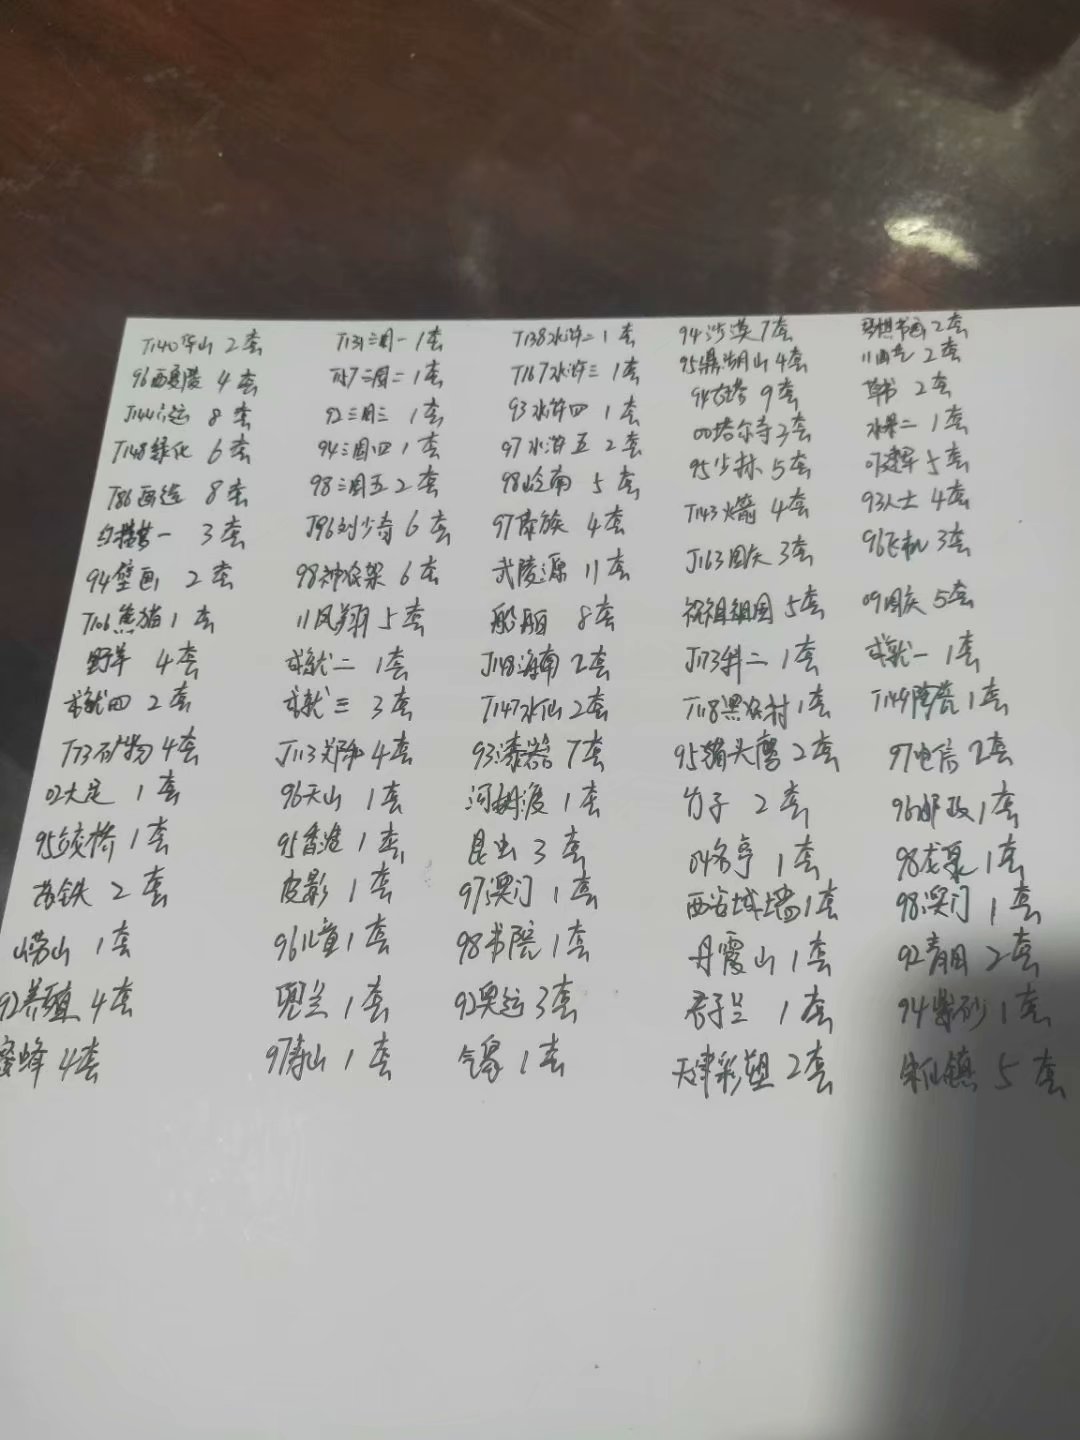 T140华山 2套 T131三国一 1套 T138水浒二 1套 94沙漠 7套 2套
96西夏陵 4套 T157三国二 1套 T167水浒三 1套 95鼎湖山 4套 11曲艺 2套
J144六运 8套 92三国三 1套 93水浒四 1套 94古塔 9套 草书 2套
T148绿化 6套 94三国四 1套 97水浒五 2套 00塔尔寺 3套 水果二 1套
T86西运 8套 98三国五 2套 98岭南 5套 95少林 5套 07建军 5套
红楼梦一 3套 J96刘少奇 6套 97傣族 4套 T143火箭 4套 93人士 4套
94壁画 2套 98神农架 6套 武陵源 11套 J163国庆 3套 96飞机 3套
T106熊猫 1套 11凤翔 5套 船舶 8套 祝福祖国 5套 09国庆 5套
野羊 4套 成就二 1套 J148海南 2套 J173科二 1套 成就一 1套
成就四 2套 成就三 3套 T147水仙 2套 T118黑农村 1套 T149陶瓷 1套
T73矿物 4套 J113郑和 4套 93漆器 7套 95猫头鹰 2套 97电信 2套
02大足 1套 96天山 1套 河姆渡 1套 竹子 2套 96邮政 1套
95立交桥 1套 95香港 1套 昆虫 3套 04名亭 1套 98龙泉 1套
苏铁 2套 皮影 1套 97澳门 1套 西安城墙 1套 98澳门 1套
崂山 1套 96儿童 1套 98书院 1套 丹霞山 1套 92青田 2套
92养殖 4套 兜兰 1套 92奥运 3套 君子兰 1套 94紫砂 1套
蜜蜂 4套 97寿山 1套 气象 1套 天津彩塑 2套 朱仙镇 5套